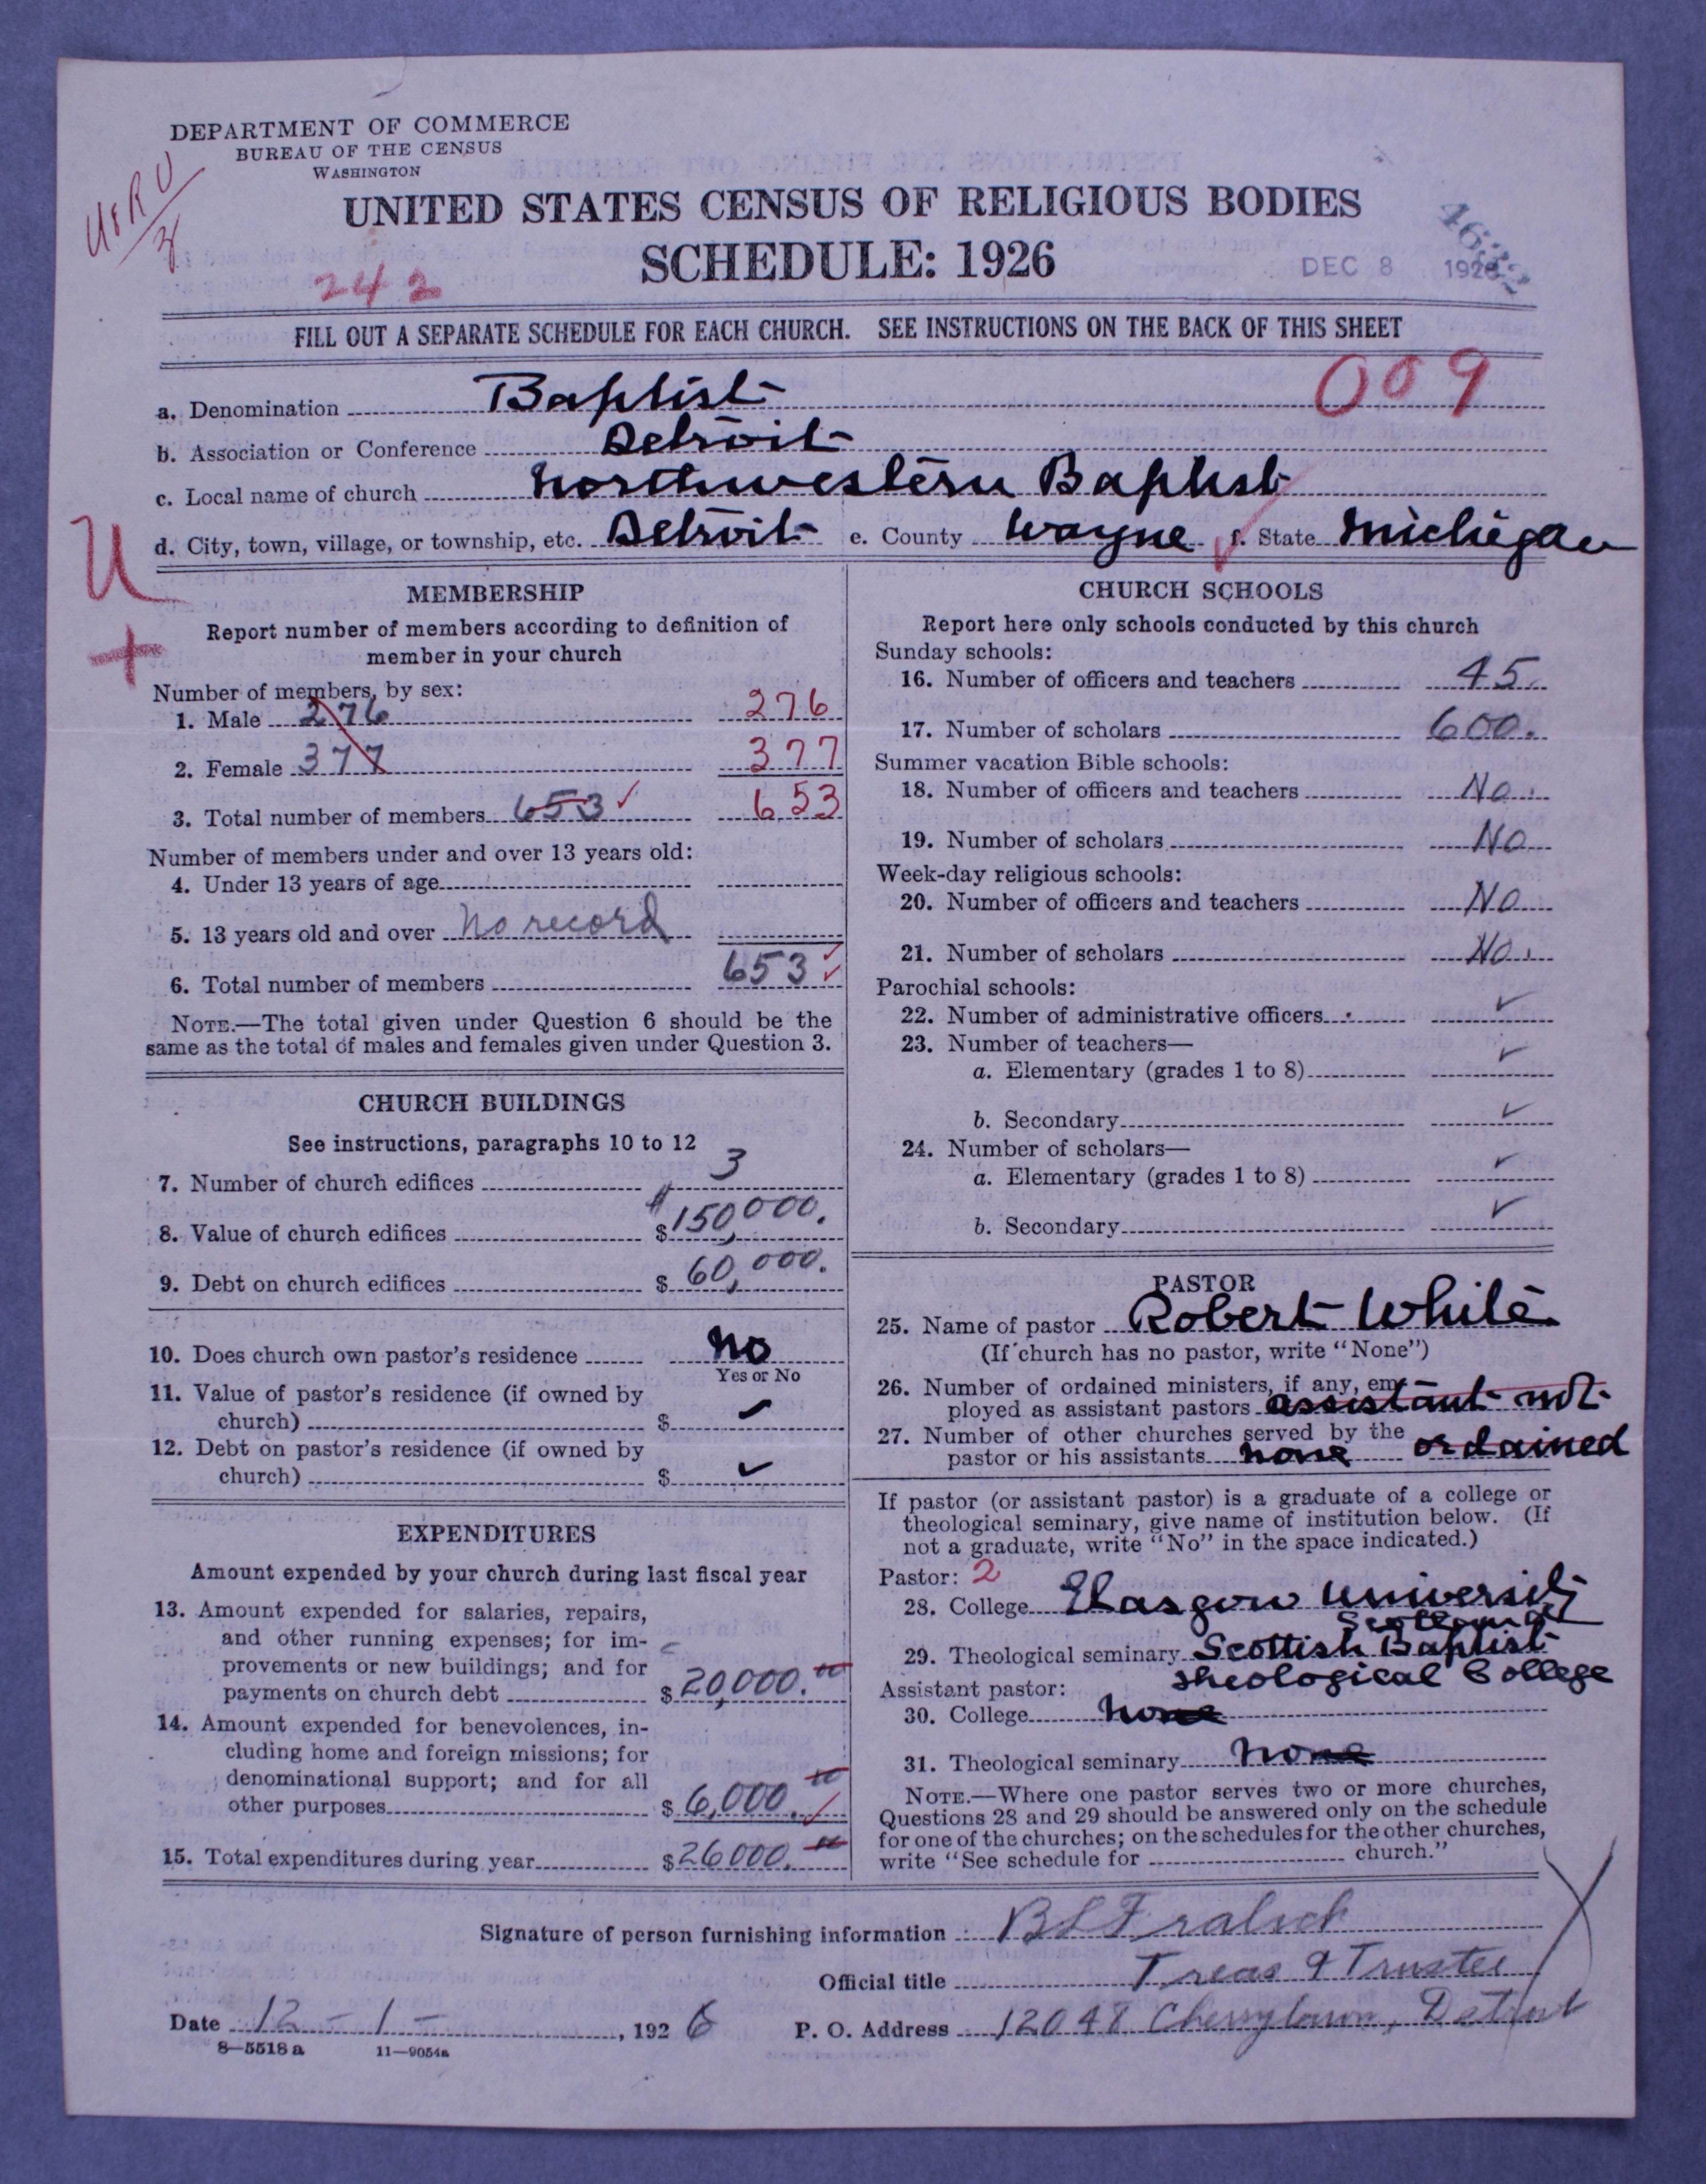 DEPARTMENT OF COMMERCE
BUREAU OF THE CENSUS
WASHINGTON
UNITED STATES CENSUS OF RELIGIOUS BODIES
SCHEDULE: 1926
242
DEC 8 1926
FILL OUT A SEPARATE SCHEDULE FOR EACH CHURCH. SEE INSTRUCTIONS ON THE BACK OF THIS SHEET
009
a. Denomination Baptist
b. Association or Conference Detroit
c. Local name of church Northwestern Baptist
d. City, town, village, or township, etc. Detroit e. County Wayne f. State Michigan
U
+
MEMBERSHIP
Report number of members according to definition of
member in your church
Number of members, by sex:
1. Male 276 276
2. Female 377 377
3. Total number of members 653 ✓ 653
Number of members under and over 13 years old:
4. Under 13 years of age
5. 13 years old and over No record
6. Total number of members 653 ✓ ✓
NOTE.—The total given under Question 6 should be the
same as the total of males and females given under Question 3.
CHURCH BUILDINGS
See instructions, paragraphs 10 to 12
7. Number of church edifices 3
8. Value of church edifices $ 150,000.
9. Debt on church edifices $ 60,000.
10. Does church own pastor's residence No
Yes or No
11. Value of pastor's residence (if owned by
church) $ ✓
12. Debt on pastor's residence (if owned by
church) $ ✓
EXPENDITURES
Amount expended by your church during last fiscal year
13. Amount expended for salaries, repairs,
and other running expenses; for im-
provements or new buildings; and for
payments on church debt $ 20,000.00
14. Amount expended for benevolences, in-
cluding home and foreign missions; for
denominational support; and for all
other purposes $ 6,000.00 ✓
15. Total expenditures during year $ 26000.00
CHURCH SCHOOLS
Report here only schools conducted by this church
Sunday schools:
16. Number of officers and teachers 45.
17. Number of scholars 600.
Summer vacation Bible schools:
18. Number of officers and teachers No.
19. Number of scholars No
Week-day religious schools:
20. Number of officers and teachers No
21. Number of scholars No.
Parochial schools:
22. Number of administrative officers ✓
23. Number of teachers—
a. Elementary (grades 1 to 8) ✓
b. Secondary ✓
24. Number of scholars—
a. Elementary (grades 1 to 8) ✓
b. Secondary ✓
PASTOR
25. Name of pastor Robert White
(If church has no pastor, write "None")
26. Number of ordained ministers, if any, em-
ployed as assistant pastors assistant not
27. Number of other churches served by the ordained
pastor or his assistants none
If pastor (or assistant pastor) is a graduate of a college or
theological seminary, give name of institution below. (If
not a graduate, write "No" in the space indicated.)
Pastor: 2
28. College Glasgow University
Scotland
29. Theological seminary Scottish Baptist
Theological College
Assistant pastor:
30. College None
31. Theological seminary None
NOTE.—Where one pastor serves two or more churches,
Questions 28 and 29 should be answered only on the schedule
for one of the churches; on the schedules for the other churches,
write "See schedule for church."
Signature of person furnishing information B L Fralick
Official title Treas & Trustee
Date 12-1-, 1926 P. O. Address 12048 Cherrylawn, Detroit
8—5518 a 11—9054a